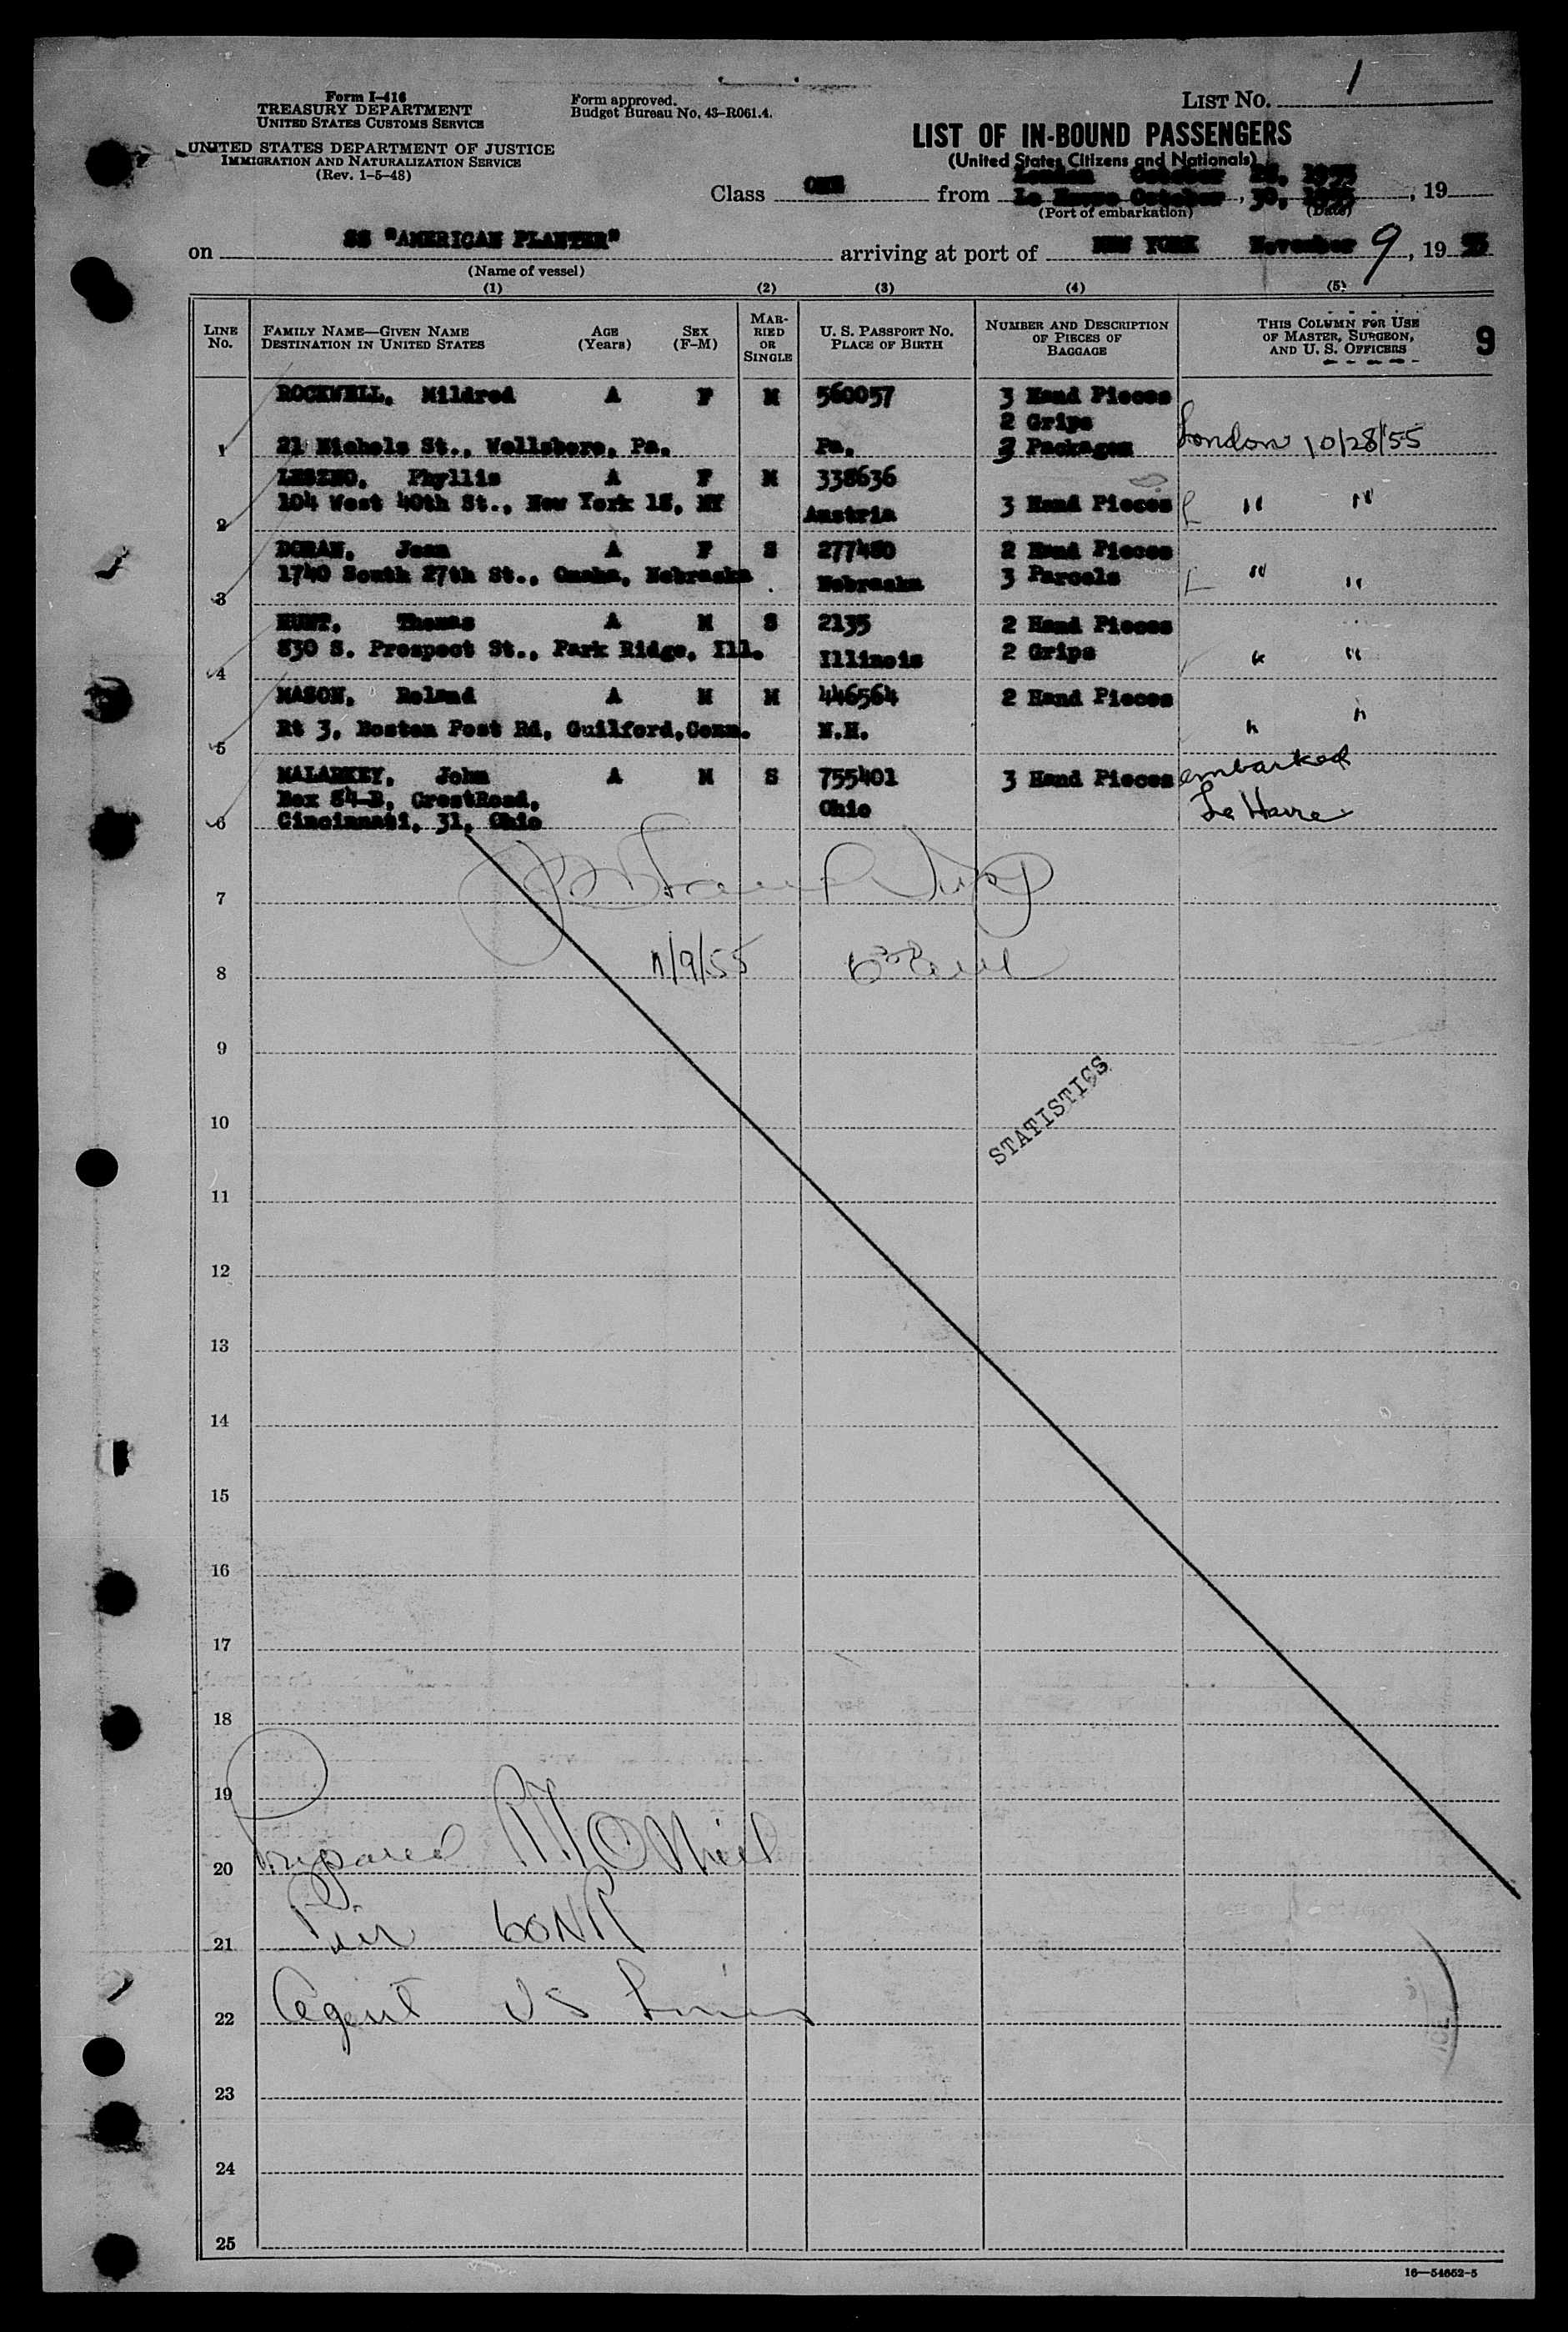 Form I-416
TREASURY DEPARTMENT
UNITED STATES CUSTOMS SERVICE
UNITED STATES DEPARTMENT OF JUSTICE
IMMIGRATION AND NATURALIZATION SERVICE
(Rev. 1-5-48)
Form approved.
Budget Bureau No. 43-R061.4.
LIST NO. 1
LIST OF IN-BOUND PASSENGERS
(United States Citizens and Nationals)
London October 28, 1955
Class ONE from Le Havre October, 30, 1955, 19
(Port of embarkation) (Date)
on SS "AMERICAN PLANTER" arriving at port of NEW YORK November 9, 19 55
(Name of vessel)
(1) (2) (3) (4) (5)
LINE No. FAMILY NAME—GIVEN NAME DESTINATION IN UNITED STATES AGE (Years) SEX (F-M) MARRIED OR SINGLE U. S. PASSPORT NO. PLACE OF BIRTH NUMBER AND DESCRIPTION OF PIECES OF BAGGAGE THIS COLUMN FOR USE OF MASTER, SURGEON, AND U. S. OFFICERS 9
ROCKWELL, Mildred A F M 560057 3 Hand Pieces
2 Grips
1 21 Nichols St., Wellsboro, Pa. Pa. 3 Packages London 10/28/55
Phyllis A F M 338636
104 West 40th St., New York 18, NY 3 Hand Pieces " "
2 Austria
DORAN, Jean A F S 277480 2 Hand Pieces
1740 South 27th St., Omaha, Nebraska Nebraska 3 Parcels " "
3
HUNT, Thomas A M S 2135 2 Hand Pieces
830 S. Prospect St., Park Ridge, Ill. Illinois 2 Grips " "
4
MASON, Roland A M M 446564 2 Hand Pieces
Rt 3, Boston Post Rd, Guilford, Conn. N.H. " "
5
MALARKEY, John A M S 755401 3 Hand Pieces embarked
Box 84-B, CrestRoad, Ohio Le Havre
6 Cincinnati, 31, Ohio
7
8 11/9/55
9
10
STATISTICS
11
12
13
14
15
16
17
18
19
20 Prepared
21 Pier 60NR
22 Agent US Lines
23
24
25
16—54652-5